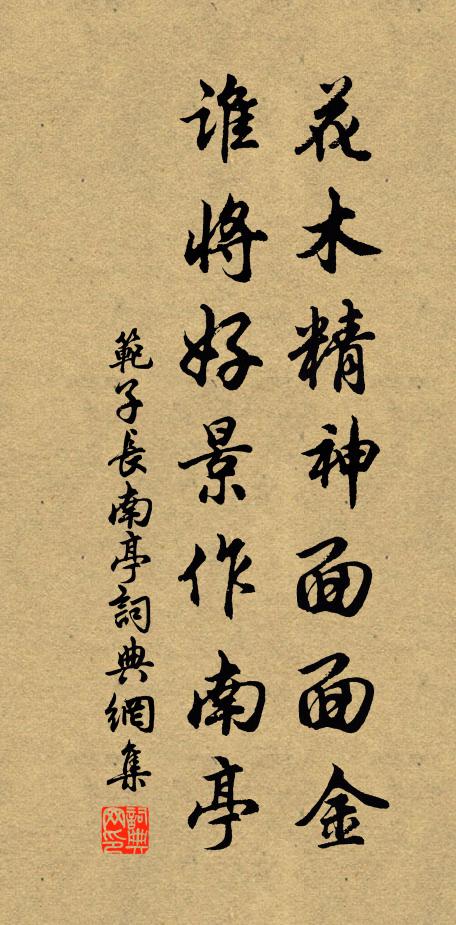 花木精神面面金
誰將好景作南亭
範子長南亭詞典網集
詞典網印